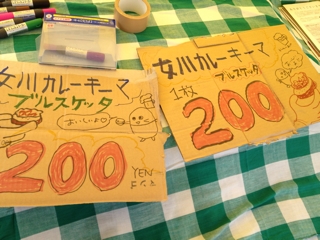 女川カレーキーマ
ブルスケッタ
おいしいよ
200
YEN
女川カレーキーマ
ブルスケッタ
1枚
200